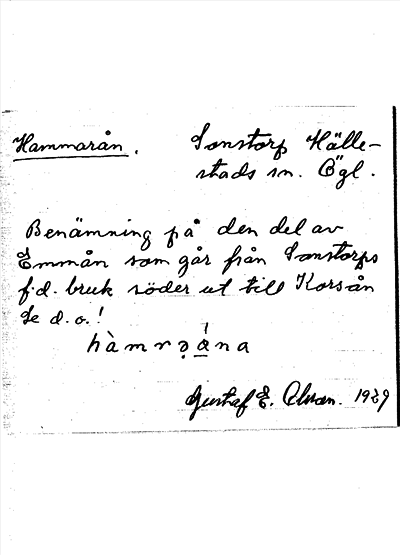 Hammarån. Sonstorp Hälle-
stads sn. Ögl.
Benämning på den del av
Emmån som går från Sonstorps
f.d. bruk söder ut till Korsån
Se d.o.!
hàmrəána
Gustaf E. 1939